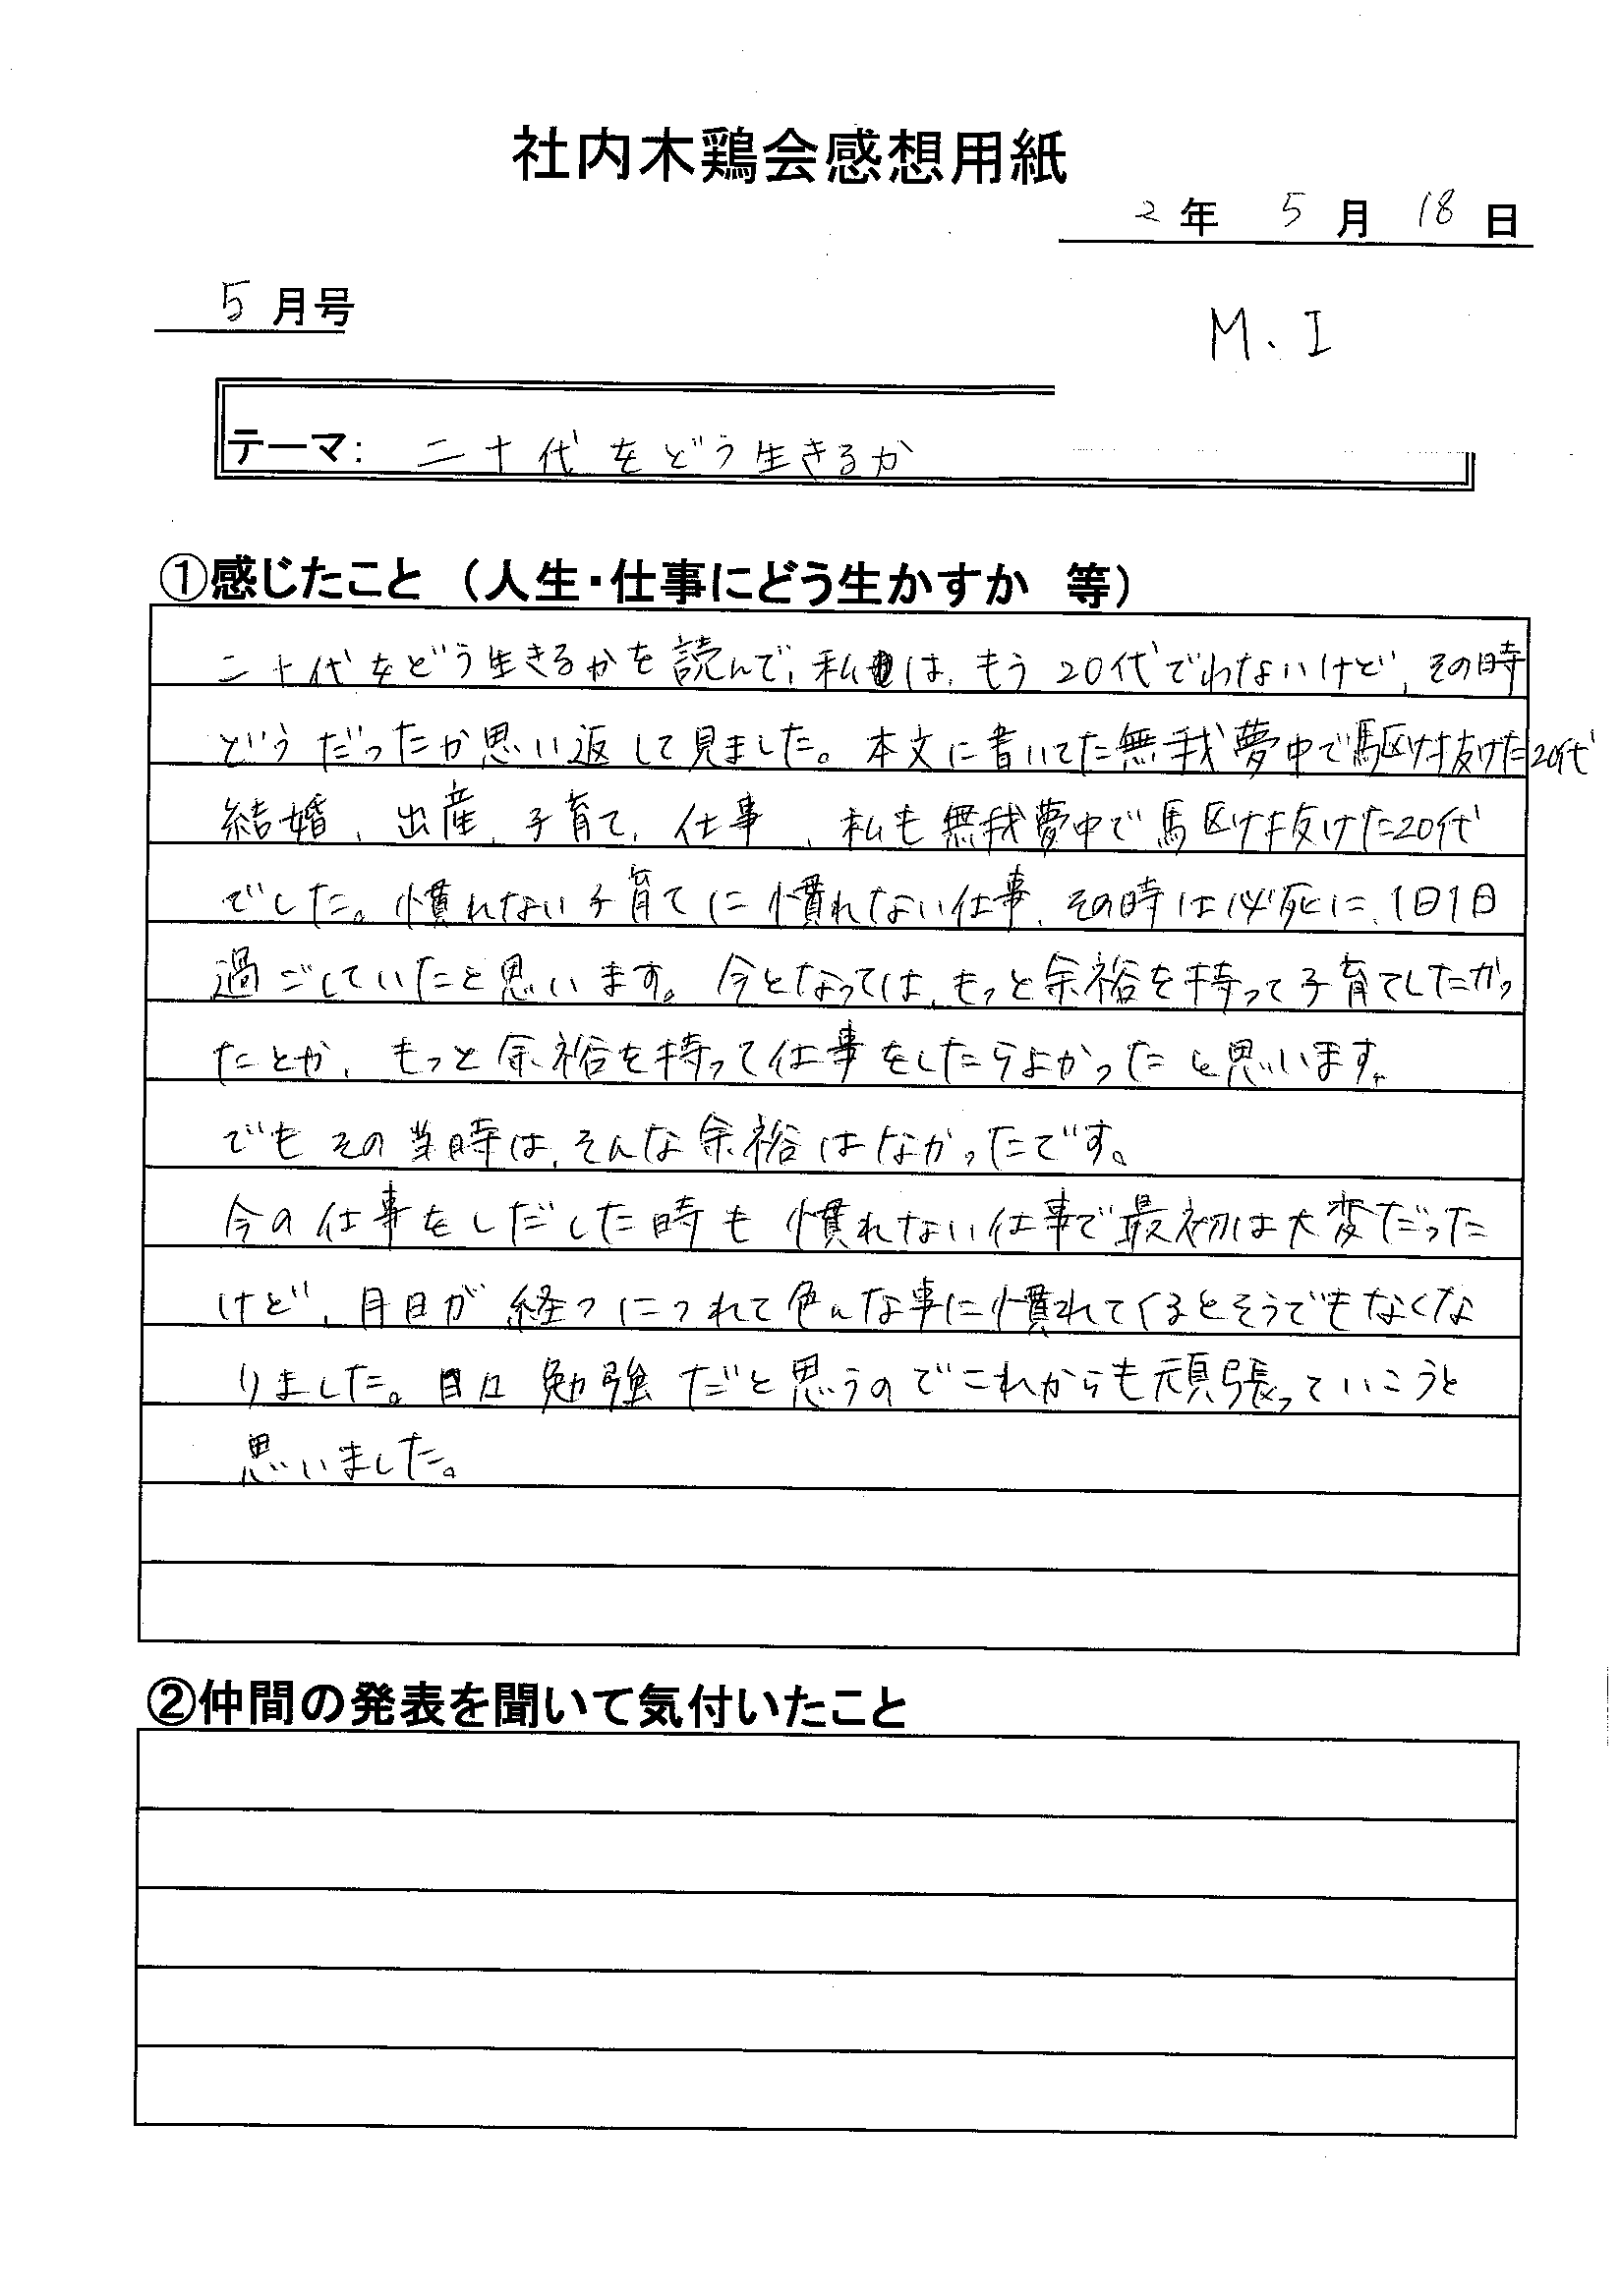 社内木鶏会感想用紙
2年 5月 18日
5月号
M.I
テーマ: 二十代をどう生きるか
①感じたこと （人生・仕事にどう生かすか 等）
二十代をどう生きるかを読んで、私は、もう20代でわないけど、その時
どうだったか思い返して見ました。本文に書いてた無我夢中で駆け抜けた20代
結婚、出産、子育て、仕事、私も無我夢中で駆け抜けた20代
でした。慣れない子育てに慣れない仕事、その時は必死に、1日1日
過ごしていたと思います。今となっては、もっと余裕を持って子育てしたかっ
たとか、もっと余裕を持って仕事をしたらよかったと思います。
でもその当時は、そんな余裕はなかったです。
今の仕事をしだした時も慣れない仕事で最初は大変だった
けど、月日が経つにつれて色んな事に慣れてくるとそうでもなくな
りました。日々勉強だと思うのでこれからも頑張っていこうと
思いました。
②仲間の発表を聞いて気付いたこと